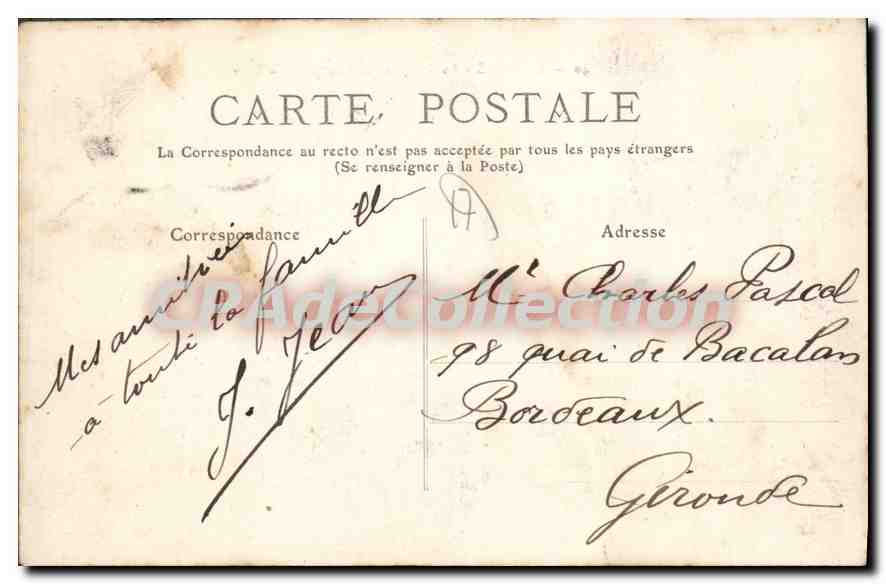 CARTE POSTALE
La Correspondance au recto n'est pas acceptée par tous les pays étrangers
(Se renseigner à la Poste)
Correspondance
Mes amitiés
à toute la famille
J. Jean
Adresse
Mr Charles Pascal
98 quai de Bacalan
Bordeaux.
Gironde
CPAdeCollection